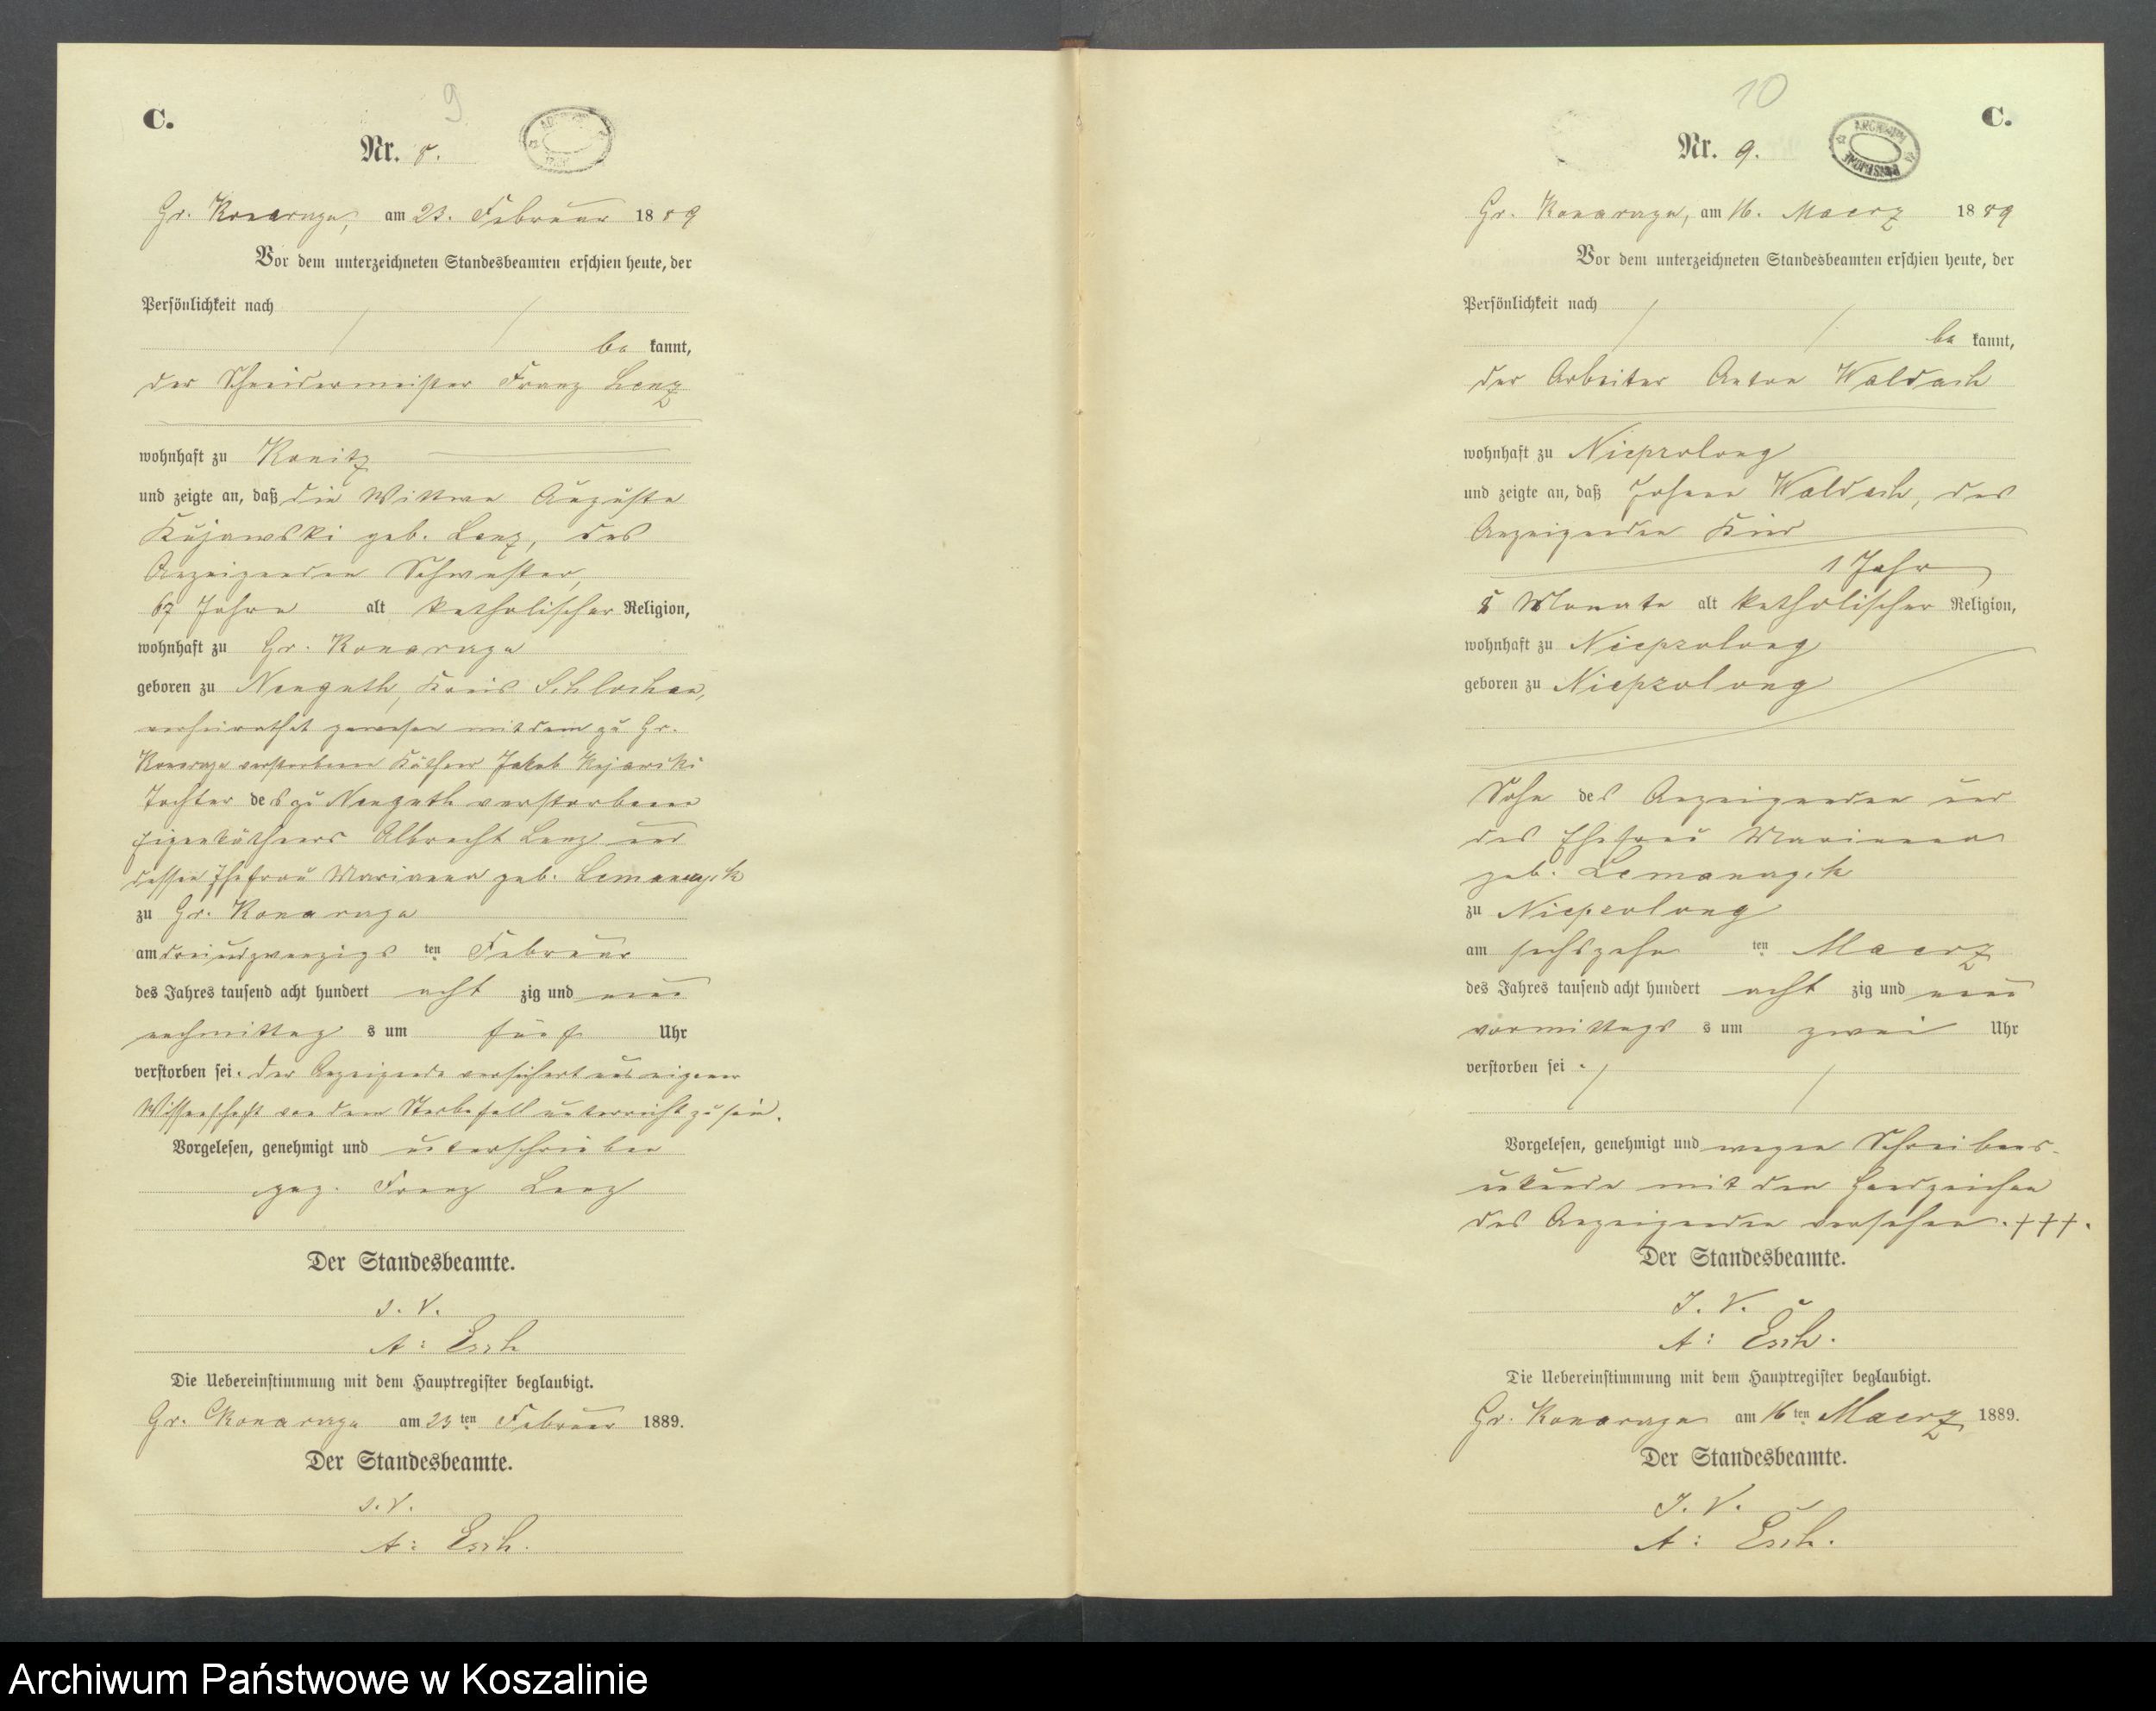 9
C.
Nr. 8.
Gr. Konarczyn, am 23. Februar 1889
Vor dem unterzeichneten Standesbeamten erschien heute, der
Persönlichkeit nach
be kannt,
der Schneidermeister Franz Lenz
wohnhaft zu Konitz
und zeigte an, daß die Wittwe Auguste
Kujawski geb. Lenz, des
Anzeigenden Schwester,
67 Jahre alt katholischer Religion,
wohnhaft zu Gr. Konarczyn
geboren zu Neuguth, Kreis Schlochau,
verheirathet gewesen mit dem zu Gr.
verstorbenen Käthner Jakob Kujawski
Tochter des zu Neuguth verstorbenen
Eigenkäthners Albrecht Lenz und
dessen Ehefrau Marianna geb.
zu Gr. Konarczyn
am dreiundzwanzigs ten Februar
des Jahres tausend acht hundert acht zig und neun
nachmittag s um fünf Uhr
verstorben sei. Der Anzeigende versichert aus eigener
Wissenschaft von dem Sterbefall unterricht zu sein.
Vorgelesen, genehmigt und unterschrieben
gez. Franz Lenz
Der Standesbeamte.
J. V.
A: Esch
Die Uebereinstimmung mit dem Hauptregister beglaubigt.
Gr. Konarczyn am 23 ten Februar 1889.
Der Standesbeamte.
J. V.
A: Esch.
10
C.
ARCHIWUM
Nr. 9.
Gr. Konarczyn, am 16. Maerz 1889
Vor dem unterzeichneten Standesbeamten erschien heute, der
Persönlichkeit nach
be kannt,
der Arbeiter Anton Waldach
wohnhaft zu
und zeigte an, daß Johann Waldach, des
Anzeigenden Kind
1 Jahr
8 Monate alt katholischer Religion,
wohnhaft zu
geboren zu
Sohn des Anzeigenden und
des Ehefrau Marianna
geb.
zu
am sechszehn ten Maerz
des Jahres tausend acht hundert acht zig und neun
vormittags s um zwei Uhr
verstorben sei.
Vorgelesen, genehmigt und wegen Schreibens-
unkunde mit den Handzeichen
des Anzeigenden versehen. +++.
Der Standesbeamte.
J. V.
A: Esch.
Die Uebereinstimmung mit dem Hauptregister beglaubigt.
Gr. Konarczyn am 16 ten Maerz 1889.
Der Standesbeamte.
J. V.
A: Esch.
Archiwum Państwowe w Koszalinie